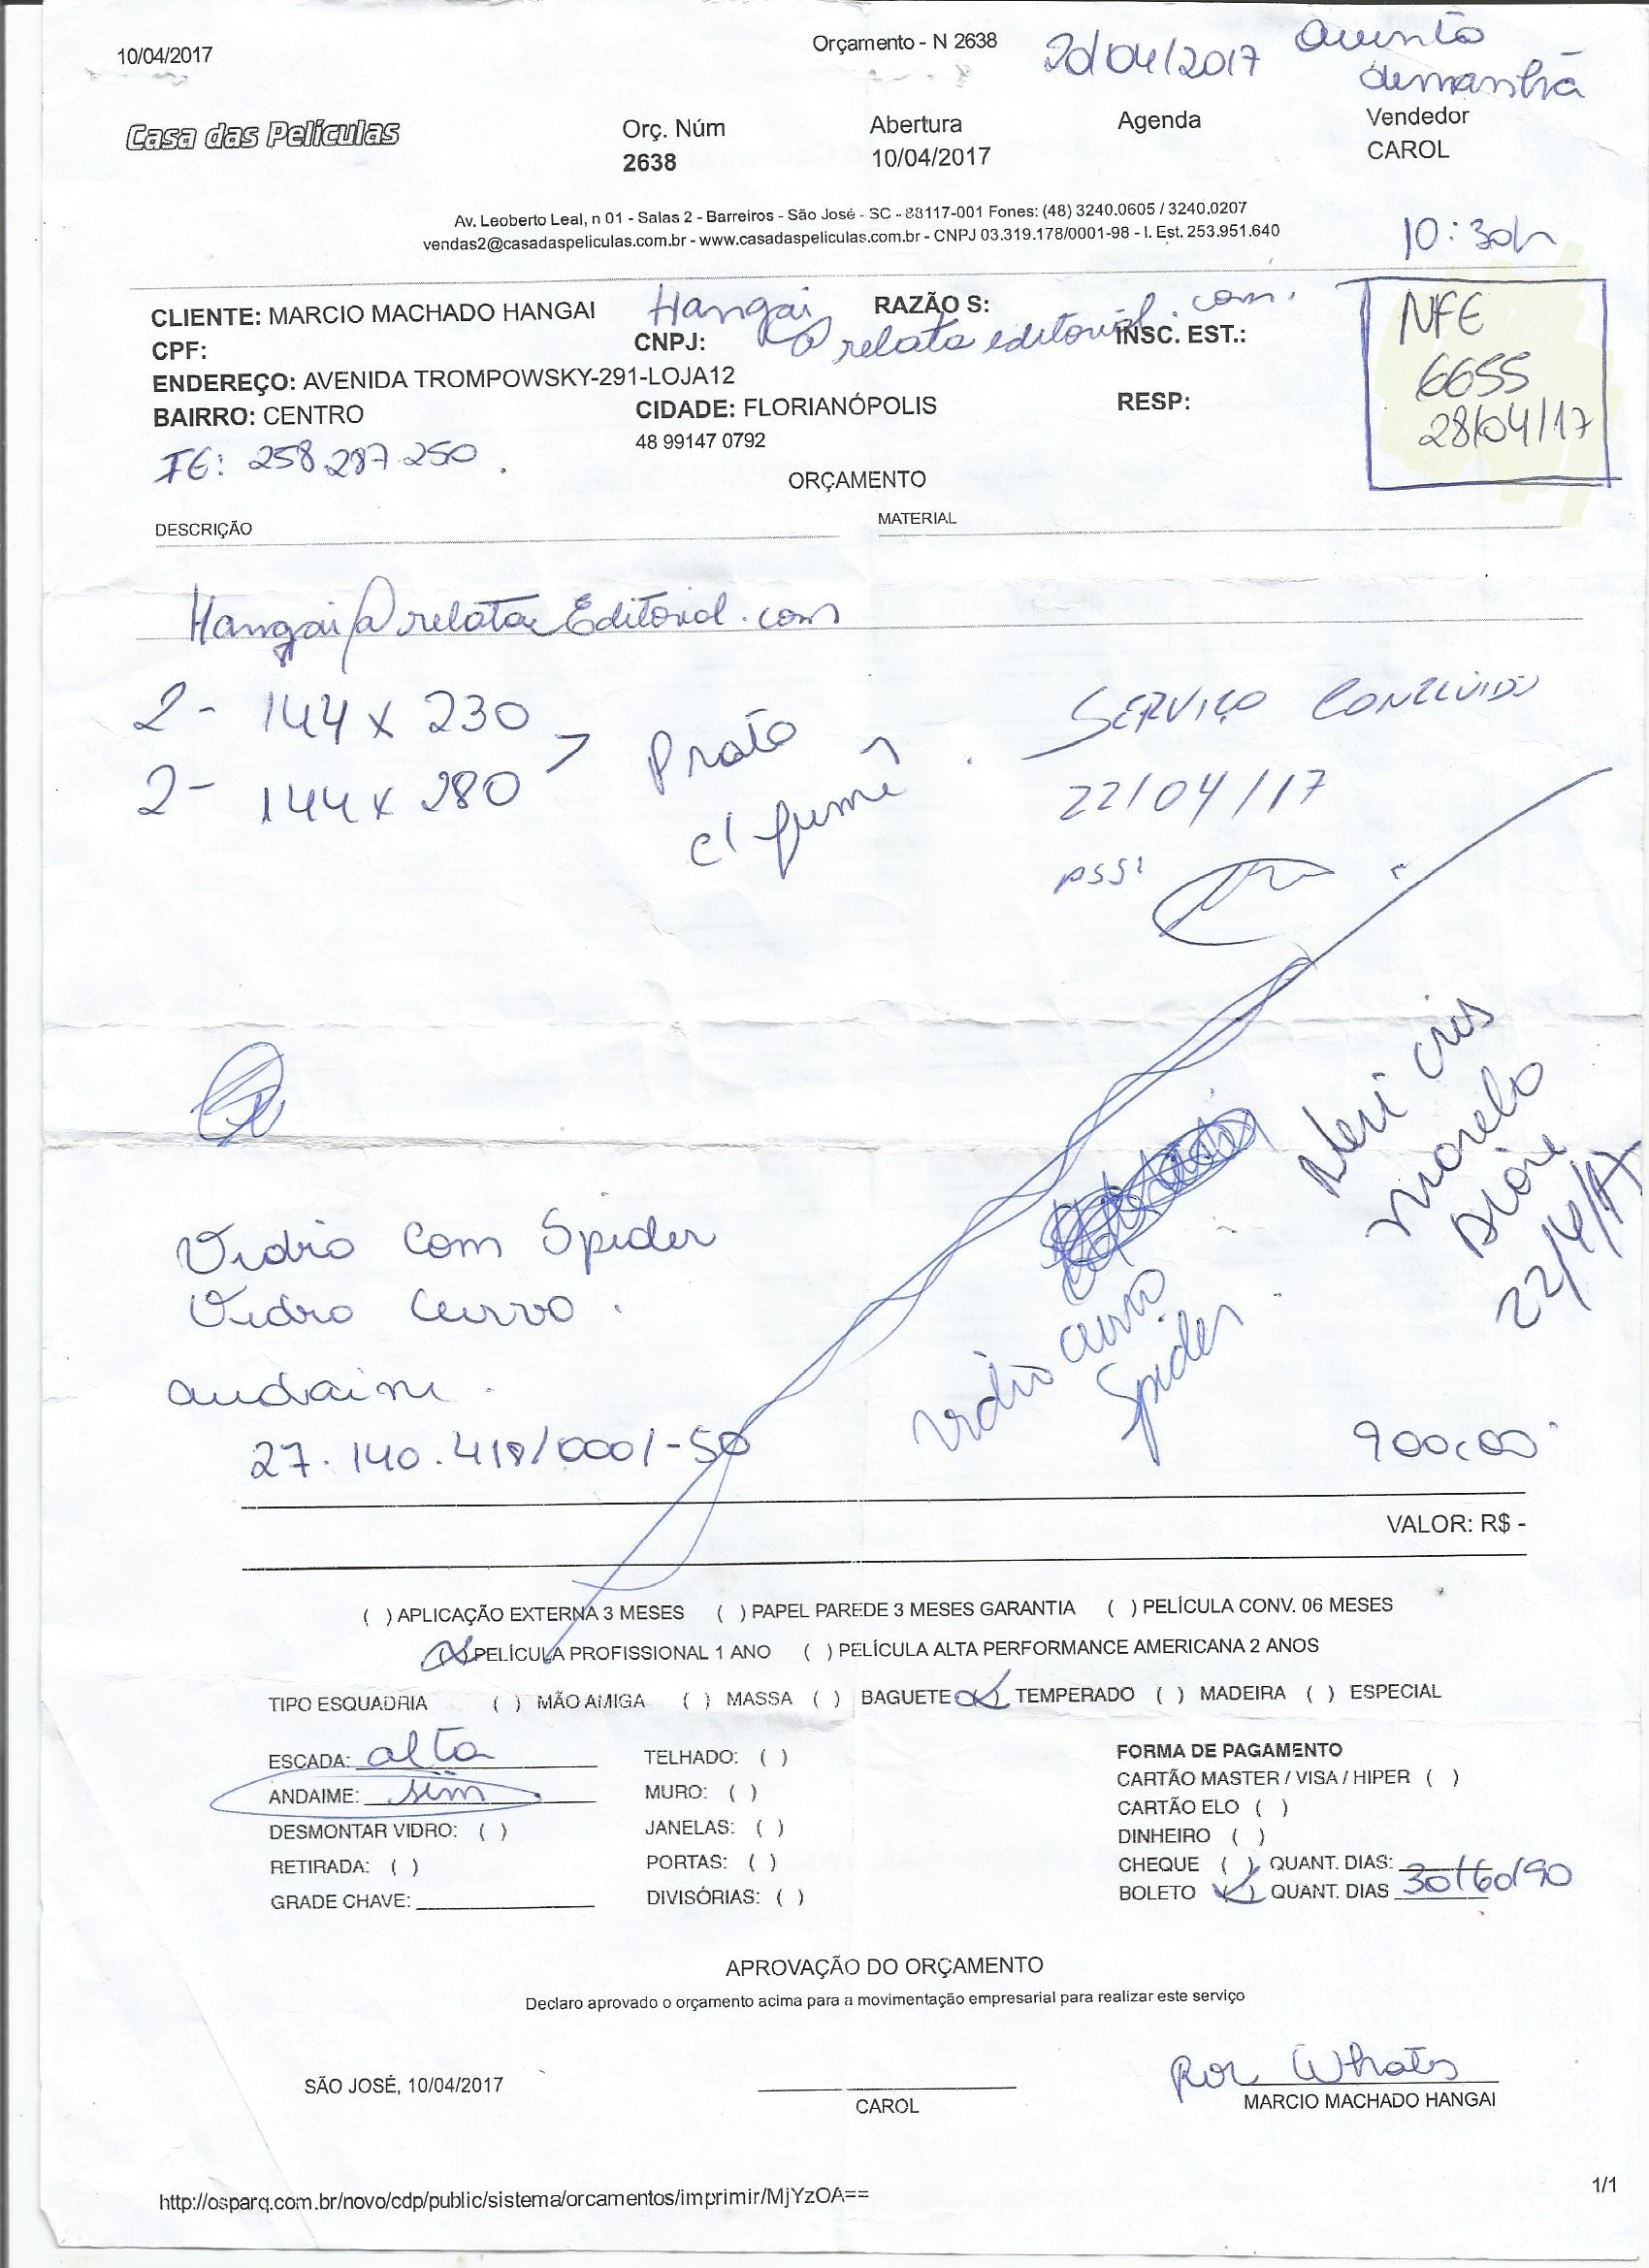 10/04/2017
Orçamento - N 2638
20/04/2017
Quinta
demanhã
Casa das Películas
Orç. Núm
2638
Abertura
10/04/2017
Agenda
Vendedor
CAROL
Av. Leoberto Leal, n 01 - Salas 2 - Barreiros - São José - SC - 88117-001 Fones: (48) 3240.0605 / 3240.0207
vendas2@casadaspeliculas.com.br - www.casadaspeliculas.com.br - CNPJ 03.319.178/0001-98 - I. Est. 253.951.640
10:30h
CLIENTE: MARCIO MACHADO HANGAI
Hangai
RAZÃO S:
CPF:
CNPJ:
@relataeditorial.com.
INSC. EST.:
ENDEREÇO: AVENIDA TROMPOWSKY-291-LOJA12
BAIRRO: CENTRO
CIDADE: FLORIANÓPOLIS
RESP:
48 99147 0792
IE: 258.287.250.
NFE
6655
28/04/17
ORÇAMENTO
DESCRIÇÃO
MATERIAL
Hangai@relataEditorial.com
2- 144 x 230
2- 144 x 280
Prata
c/ fumê
SERVIÇO CONCLUIDO
22/04/17
ASS:
Cris
Morelo
22/4/17
Vidro Com Spider
Vidro Curvo.
andaime.
27.140.418/0001-50
vidro curvo
Spider.
900,00
VALOR: R$ -
( ) APLICAÇÃO EXTERNA 3 MESES ( ) PAPEL PAREDE 3 MESES GARANTIA ( ) PELÍCULA CONV. 06 MESES
(X) PELÍCULA PROFISSIONAL 1 ANO ( ) PELÍCULA ALTA PERFORMANCE AMERICANA 2 ANOS
TIPO ESQUADRIA ( ) MÃO AMIGA ( ) MASSA ( ) BAGUETE (X) TEMPERADO ( ) MADEIRA ( ) ESPECIAL
ESCADA: alta
ANDAIME: sim
DESMONTAR VIDRO: ( )
RETIRADA: ( )
GRADE CHAVE:
TELHADO: ( )
MURO: ( )
JANELAS: ( )
PORTAS: ( )
DIVISÓRIAS: ( )
FORMA DE PAGAMENTO
CARTÃO MASTER / VISA / HIPER ( )
CARTÃO ELO ( )
DINHEIRO ( )
CHEQUE ( ) QUANT. DIAS:
BOLETO (X) QUANT. DIAS 30/60/90
APROVAÇÃO DO ORÇAMENTO
Declaro aprovado o orçamento acima para a movimentação empresarial para realizar este serviço
SÃO JOSÉ, 10/04/2017
CAROL
Por Whats
MARCIO MACHADO HANGAI
http://osparq.com.br/novo/cdp/public/sistema/orcamentos/imprimir/MjYzOA==
1/1